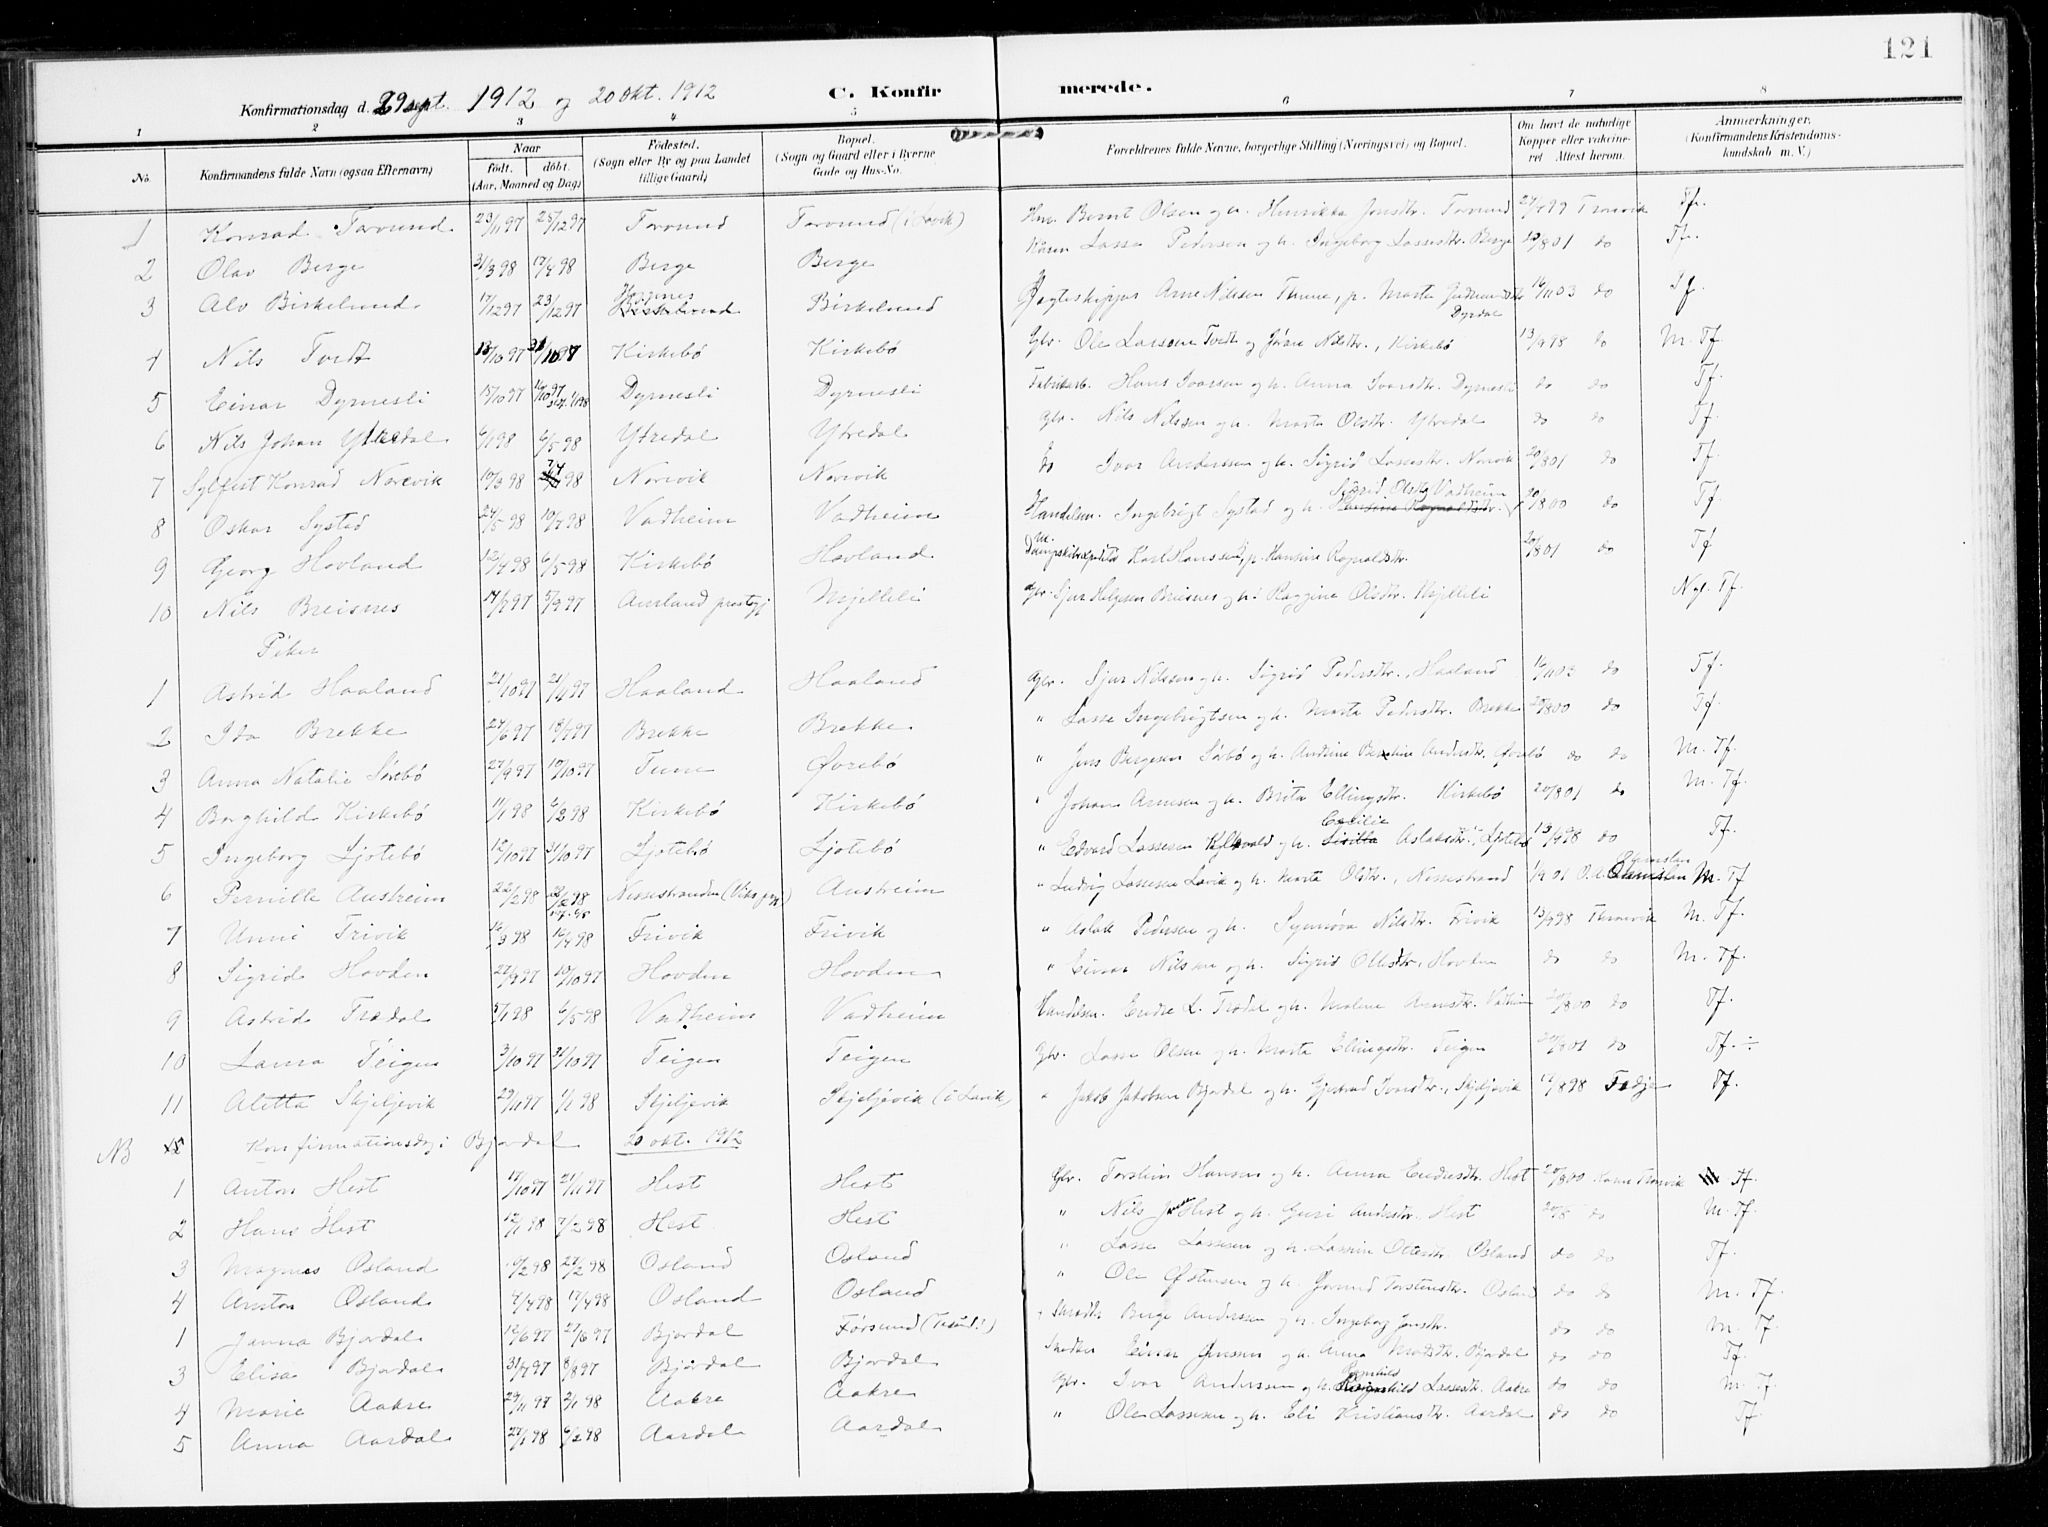 121
Konfirmationsdag d. 29 sept. 1912 og 20 okt. 1912 C. Konfirmerede.
1 2 3 4 5 6 7 8
No. Konfirmandens fulde Navn (ogsaa Efternavn) Naar født. døbt. (Aar, Maaned og Dag) Fødested. (Sogn eller By og paa Landet tillige Gaard) Bopel. (Sogn og Gaard eller i Byerne Gade og Hus-No. Forældrenes fulde Navne, borgerlige Stilling (Næringsvei) og Bopæl. Om havt de naturlige Kopper eller vakcineret Attest herom. Anmærkninger. (Konfirmandens Kristendomskundskab m. V.)
1 Konrad Torvund 23/11 97 25/12 97 Torvund Torvund (i Lavik) Bernt Olsen og h. Henrikka Jensdtr. Torvund Tf.
2 Olav Berge 31/3 98 17/4 98 Berge Berge Lasse Pedersen og h. Ingeborg Lassesdtr. Berge 20/8 01 do Tf.
3 Alv Birkelund 17/12 97 23/12 97 Birkelund Jagteskipper Arne Nilssen Thune, p. Marta Dyrdal 16/11 03 do Tf.
4 Nils Tvedt 13/10 97 31/10 97 Kirkebø Kirkebø Gbr. Ole Larssen Tvedt og Nilsdtr., Kirkebø 13/9 98 do M. Tf.
5 Einar Dyrnesli 15/10 97 Dyrnesli Dyrnesli Fabrikarb. Hans Ivarsen og h. Anna Ivarsdtr. Dyrnesli do do Tf.
6 Nils Johan Ytredal 6/1 98 6/5 98 Ytredal Ytredal Gbr. Nils Nilssen og h. Marta Olsdtr. Ytredal do do Tf.
7 Sylfest Konrad Norevik 10/3 98 98 Norevik Norevik do Ivar Anderssen og h. Sigrid Lassesdtr. Norevik 20/8 01 do Tf.
8 Oskar Systad 24/5 98 10/7 98 Vadheim Vadheim Handelsm. Ingebrigt Systad og h. Sigrid Olsdtr. Vadheim 20/8 00 do Tf
9 Georg Hovland 12/4 98 6/5 98 Kirkebø Hovland Karl Hanssen, p. Hansine Ragnaldsdtr. 20/8 01 do Tf
10 Nils Breisnes 14/7 97 5/9 97 Aurland prestegj Mjellili Gbr. Sjur Helgesen Breisnes og h. Raggine Olsdtr. Mjelleli Ngl. Tf.
Piker
1 Astrid Haaland 21/10 97 21/11 97 Haaland Haaland Gbr. Sjur Nilssen og h. Sigrid Pedersdtr., Haaland 16/11 03 do Tf.
2 Ida Brekke 24/6 97 18/7 97 Brekke Brekke " Lasse Ingebrigtsen og h. Marta Pedersdtr. Brekke 20/8 00 do Tf.
3 Anna Natalie Sørebø 27/9 97 10/10 97 Tune Øvrebø " Jens Bergesen Sørbø og h. Andersdtr. Øvrebø do do M. Tf.
4 Borghild Kirkebø 11/1 98 6/2 98 Kirkebø Kirkebø " Johan Arnesen og h. Brita Ellingsdtr. Kirkebø 20/8 01 do M. Tf.
5 Ingeborg Ljotebø 12/10 97 31/10 97 Ljotebø Ljotebø " Edvard Lassesen og h. Cecilie Aslaksdtr., Ljotebø 13/9 98 do Tf.
6 Pernille Austreim 22/2 98 Nessestranden (Viks pgj) Austreim " Ludvig Lassesen Lavik og h. Marta Olsdtr., Nessestrand M. Tf
7 Unni Trivik 16/3 98 16/4 98 Trivik Trivik " Aslak Pedersen og h. Synnøva Nilsdtr. Trivik 13/9 98 M. Tf.
8 Sigrid Hovden 22/9 97 10/10 97 Hovden Hovden " Einar Nilssen og h. Sigrid Ottesdtr. Hovden do do M. Tf.
9 Astrid Trædal 5/1 98 6/5 98 Vadheim Vadheim Handelsm. Endre L. Trædal og h. Malene Arnesdtr. Vadheim 20/8 00 do Tf.
10 Laura Teigen 3/10 97 31/10 97 Teigen Teigen Gbr. Lasse Olsen og h. Marta Ellingsdtr. Teigen 20/8 01 do Tf. ÷
11 Aletta Skjeljevik 29/11 97 1/1 98 Skjeljevik Skjeljevik (i Lavik) " Jakob Jakobsen Bjordal og h. Gjertrud Ivarsdtr., Skjeljevik 12/8 98 Tf.
NB Konfirmationsdag i Bjordal 20 okt. 1912
1 Anton Hest 17/10 97 21/11 97 Hest Hest Gbr. Torstein Hansen og h. Anna Endresdtr. Hest 20/8 00 Tf.
2 Hans Hest 12/1 98 7/2 98 Hest Hest " Nils Hest og h. Guri Andersdtr. Hest 20/8 do M. Tf.
3 Magnus Osland 10/2 98 27/2 98 Osland Osland " Lasse Lassesen og h. Ottesdtr. Osland do do Tf.
4 Anton Osland 4/4 98 17/4 98 Osland Osland " Ole Østensen og h. Torstensdtr. Osland do do M. Tf.
1 Janna Bjordal 12/6 97 27/6 97 Bjordal Førsund Berge Anderssen og h. Ingeborg Jensdtr. do do M. Tf.
3 Elisa Bjordal 31/7 97 8/8 97 Bjordal Bjordal Einar Jenssen og h. Anna Madsdtr. Bjordal do do Tf.
4 Marie Aakre 29/11 97 2/1 98 Aakre Aakre Gbr. Ivar Anderssen og h. Ragnhild Lassesdtr. Aakre do do M. Tf.
5 Anna Aardal 27/1 98 6/2 98 Aardal Aardal " Ole Lassesen og h. Eli Kristiansdtr. Aardal do do Tf.